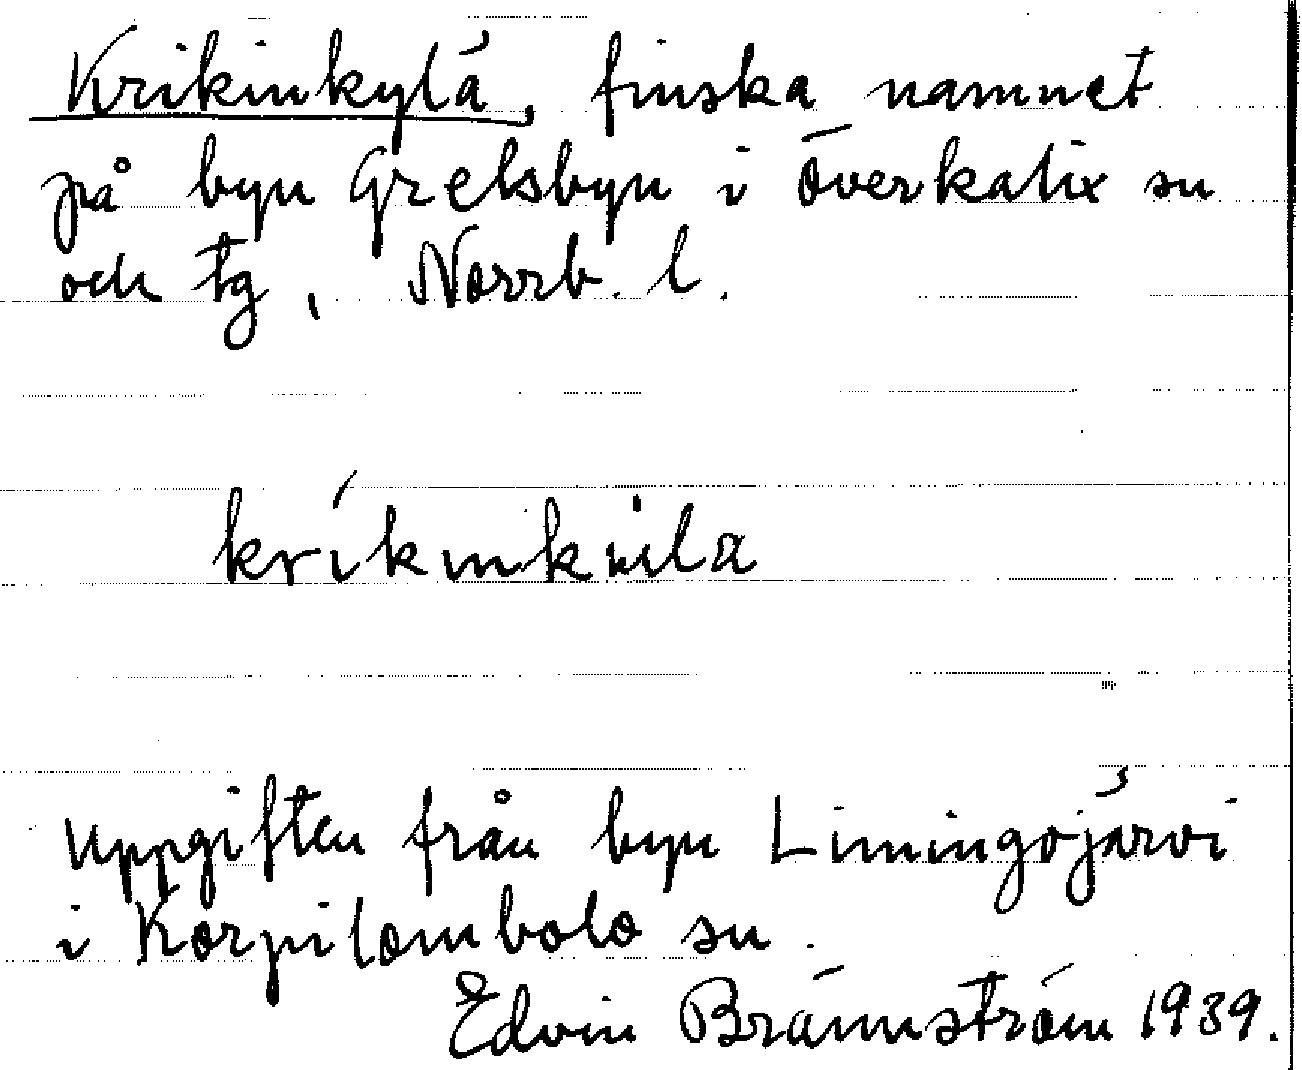 Krikinkylä, finska namnet
på byn Grelsbyn i Överkalix sn
och tg, Norrb. l.
kríkinküla
Uppgiften från byn Limingojärvi
i Korpilombolo sn.
Edvin Brännström 1939.